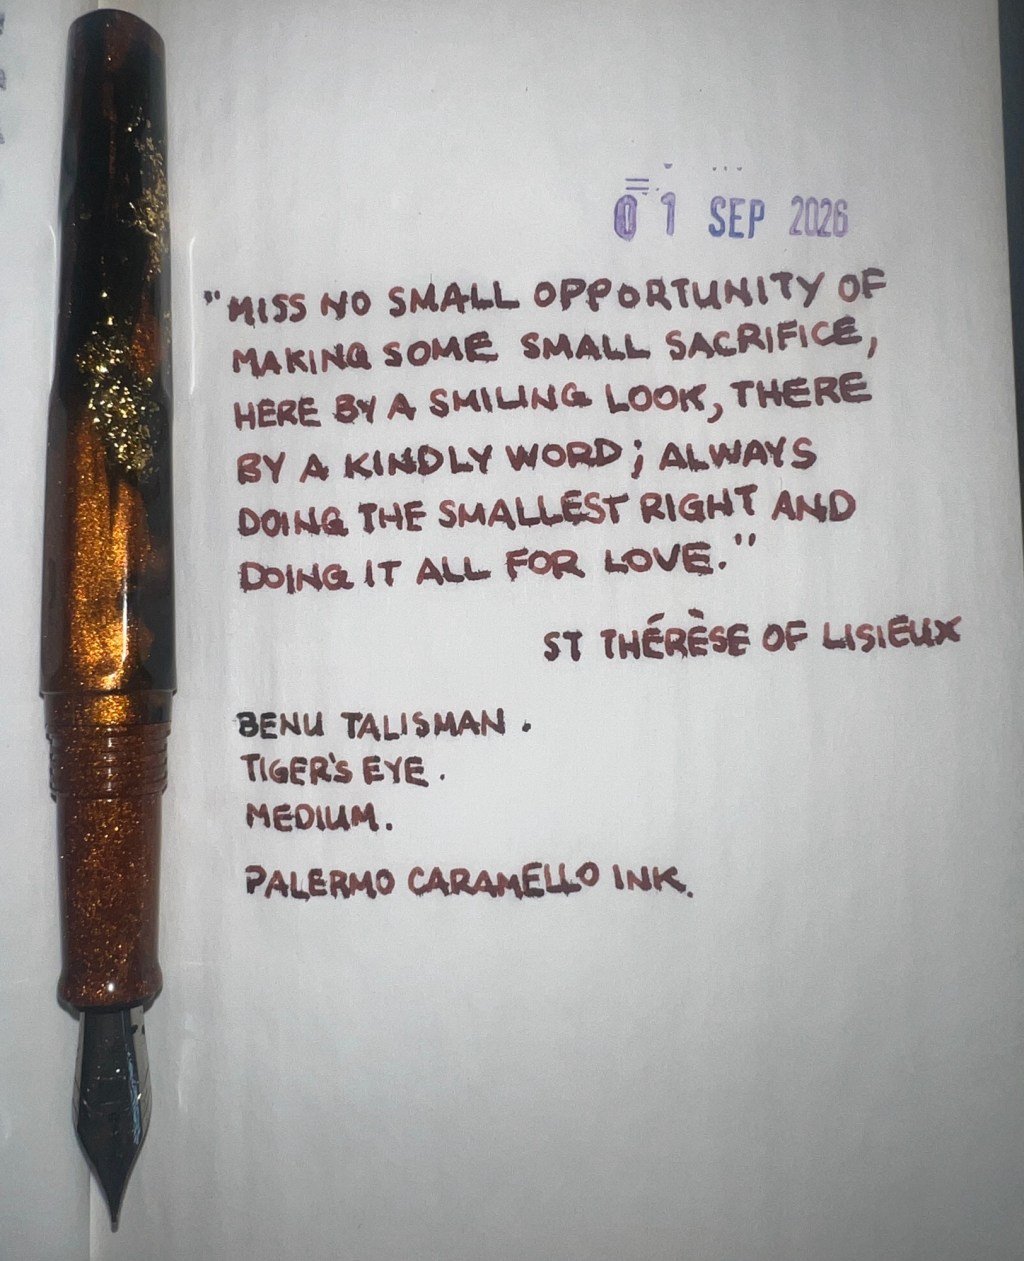 01 SEP 2026
"MISS NO SMALL OPPORTUNITY OF
MAKING SOME SMALL SACRIFICE,
HERE BY A SMILING LOOK, THERE
BY A KINDLY WORD; ALWAYS
DOING THE SMALLEST RIGHT AND
DOING IT ALL FOR LOVE."
ST THÉRÈSE OF LISIEUX
BENU TALISMAN.
TIGER'S EYE.
MEDIUM.
PALERMO CARAMELLO INK.